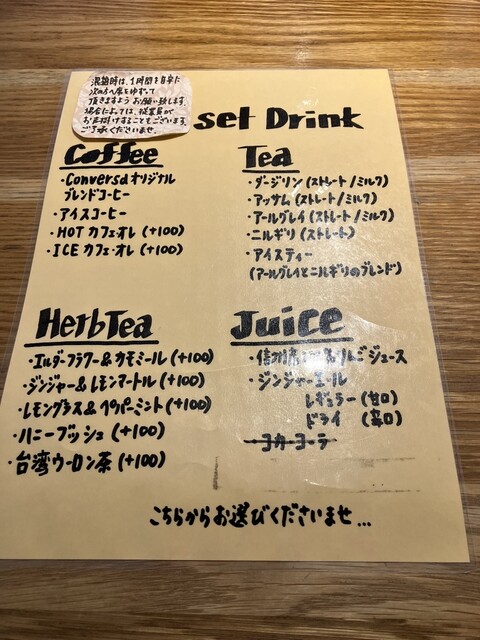 混雑時は、1時間を目安に
次の方へ席をゆずって
頂きますようお願い致します。
場合によっては、従業員が
お声掛けすることもございます。
ご了承くださいませ。
set Drink
Coffee
・Conversaオリジナル
ブレンドコーヒー
・アイスコーヒー
・HOT カフェ・オレ (+100)
・ICE カフェ・オレ (+100)
Tea
・ダージリン(ストレート/ミルク)
・アッサム(ストレート/ミルク)
・アールグレイ(ストレート/ミルク)
・ニルギリ(ストレート)
・アイスティー
(アールグレイとニルギリのブレンド)
HerbTea
・エルダーフラワー&カモミール(+100)
・ジンジャー&レモンマートル(+100)
・レモングラス&ペパーミント(+100)
・ハニーブッシュ(+100)
・台湾ウーロン茶(+100)
Juice
・信州 りんごジュース
・ジンジャーエール
レギュラー(甘口)
ドライ (辛口)
・コカ・コーラ
こちらからお選びくださいませ...